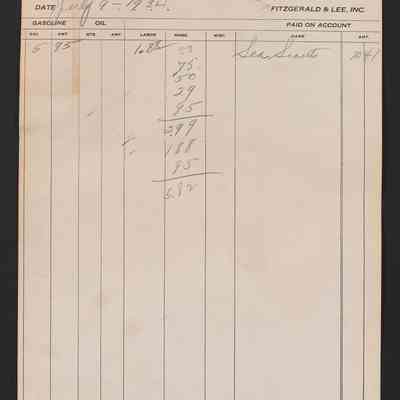 DATE July 9 - 1934. FITZGERALD & LEE, INC.
GASOLINE OIL PAID ON ACCOUNT
GAL. AMT. QTS. AMT. LABOR MDSE. MISC. NAME AMT.
5 95 1.88
75
50
29
95
2.99
188
95
5.82